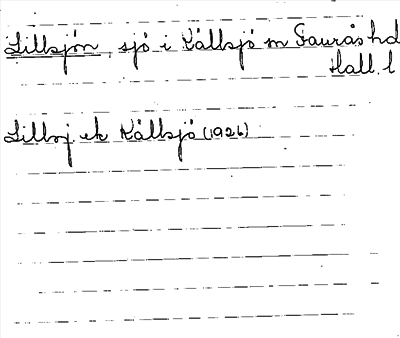 Lillsjön, sjö i Källsjö sn Faurås hd
Hall. l
Lillsj ek Källsjö (1926)